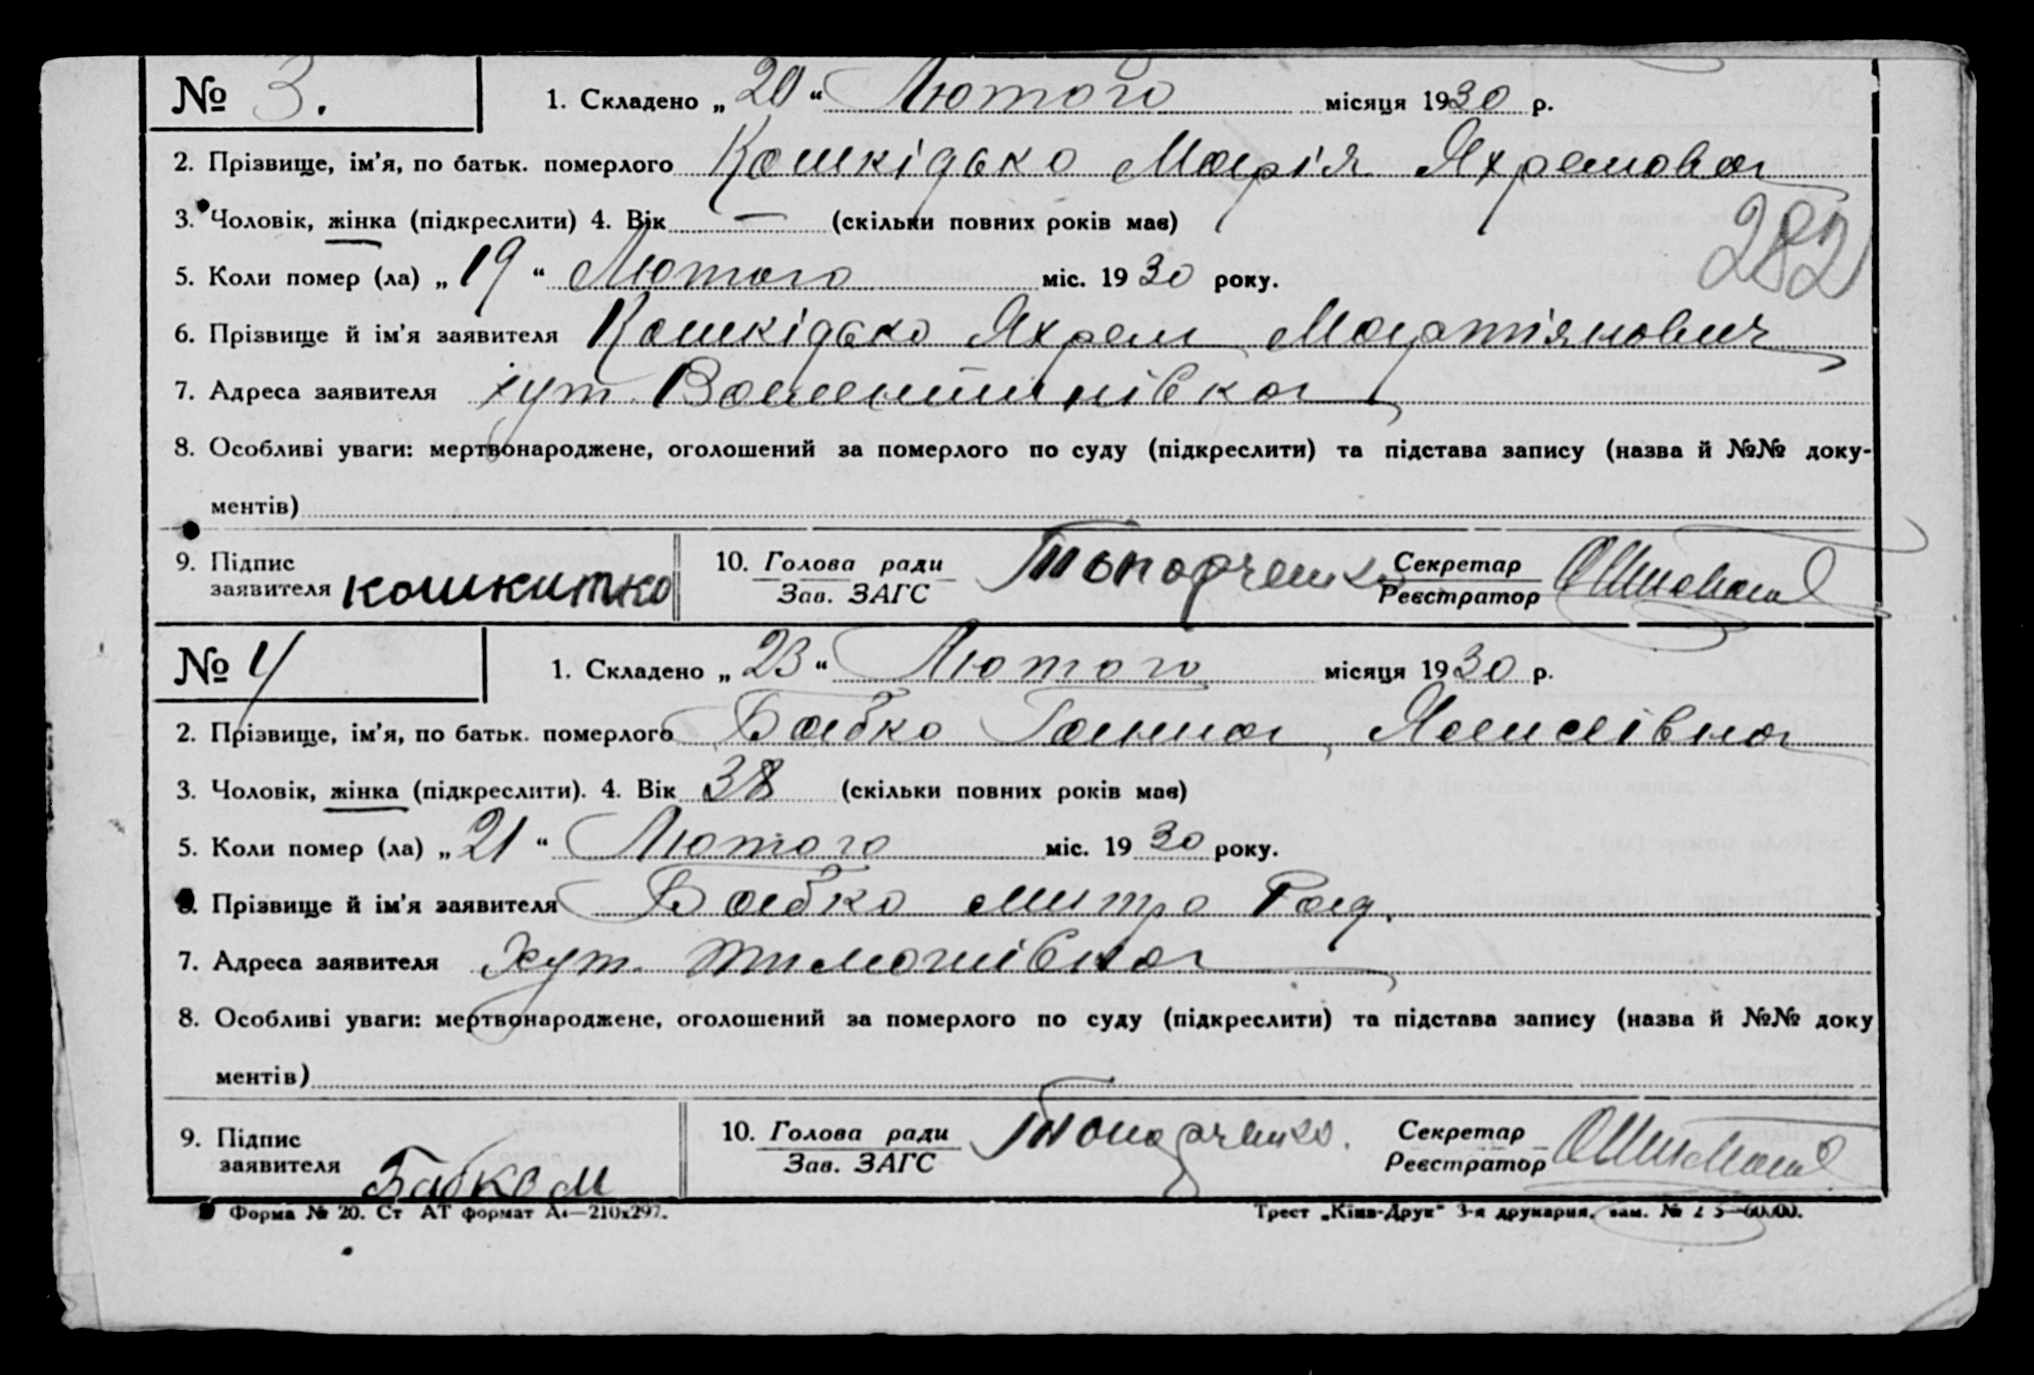 № 3. 1. Складено „20“ Лютого місяця 1930 р.
2. Прізвище, ім'я, по батьк. померлого Кошкідько Марія Яхремова
3. Чоловік, жінка (підкреслити) 4. Вік — (скільки повних років має)
282
5. Коли помер (ла) „19“ Лютого міс. 1930 року.
6. Прізвище й ім'я заявителя Кошкідько Яхрем Мартіянович
7. Адреса заявителя хут. Валентинівка
8. Особливі уваги: мертвонароджене, оголошений за померлого по суду (підкреслити) та підстава запису (назва й №№ доку-
ментів)
9. Підпис заявителя кошкитко 10. Голова ради Зав. ЗАГС Топорченко Секретар Реєстратор
№ 4 1. Складено „23“ Лютого місяця 1930 р.
2. Прізвище, ім'я, по батьк. померлого Бабко Ганна
3. Чоловік, жінка (підкреслити). 4. Вік 38 (скільки повних років має)
5. Коли помер (ла) „21“ Лютого міс. 1930 року.
6. Прізвище й ім'я заявителя Бабко Митро Рад.
7. Адреса заявителя Хут. Тимошівка
8. Особливі уваги: мертвонароджене, оголошений за померлого по суду (підкреслити) та підстава запису (назва й №№ доку
ментів)
9. Підпис заявителя Бабко М 10. Голова ради Зав. ЗАГС Топорченко. Секретар Реєстратор
Форма № 20. Ст АТ формат А4—210х297.
Трест „Київ-Друк“ 3-я друкарня, зам. №